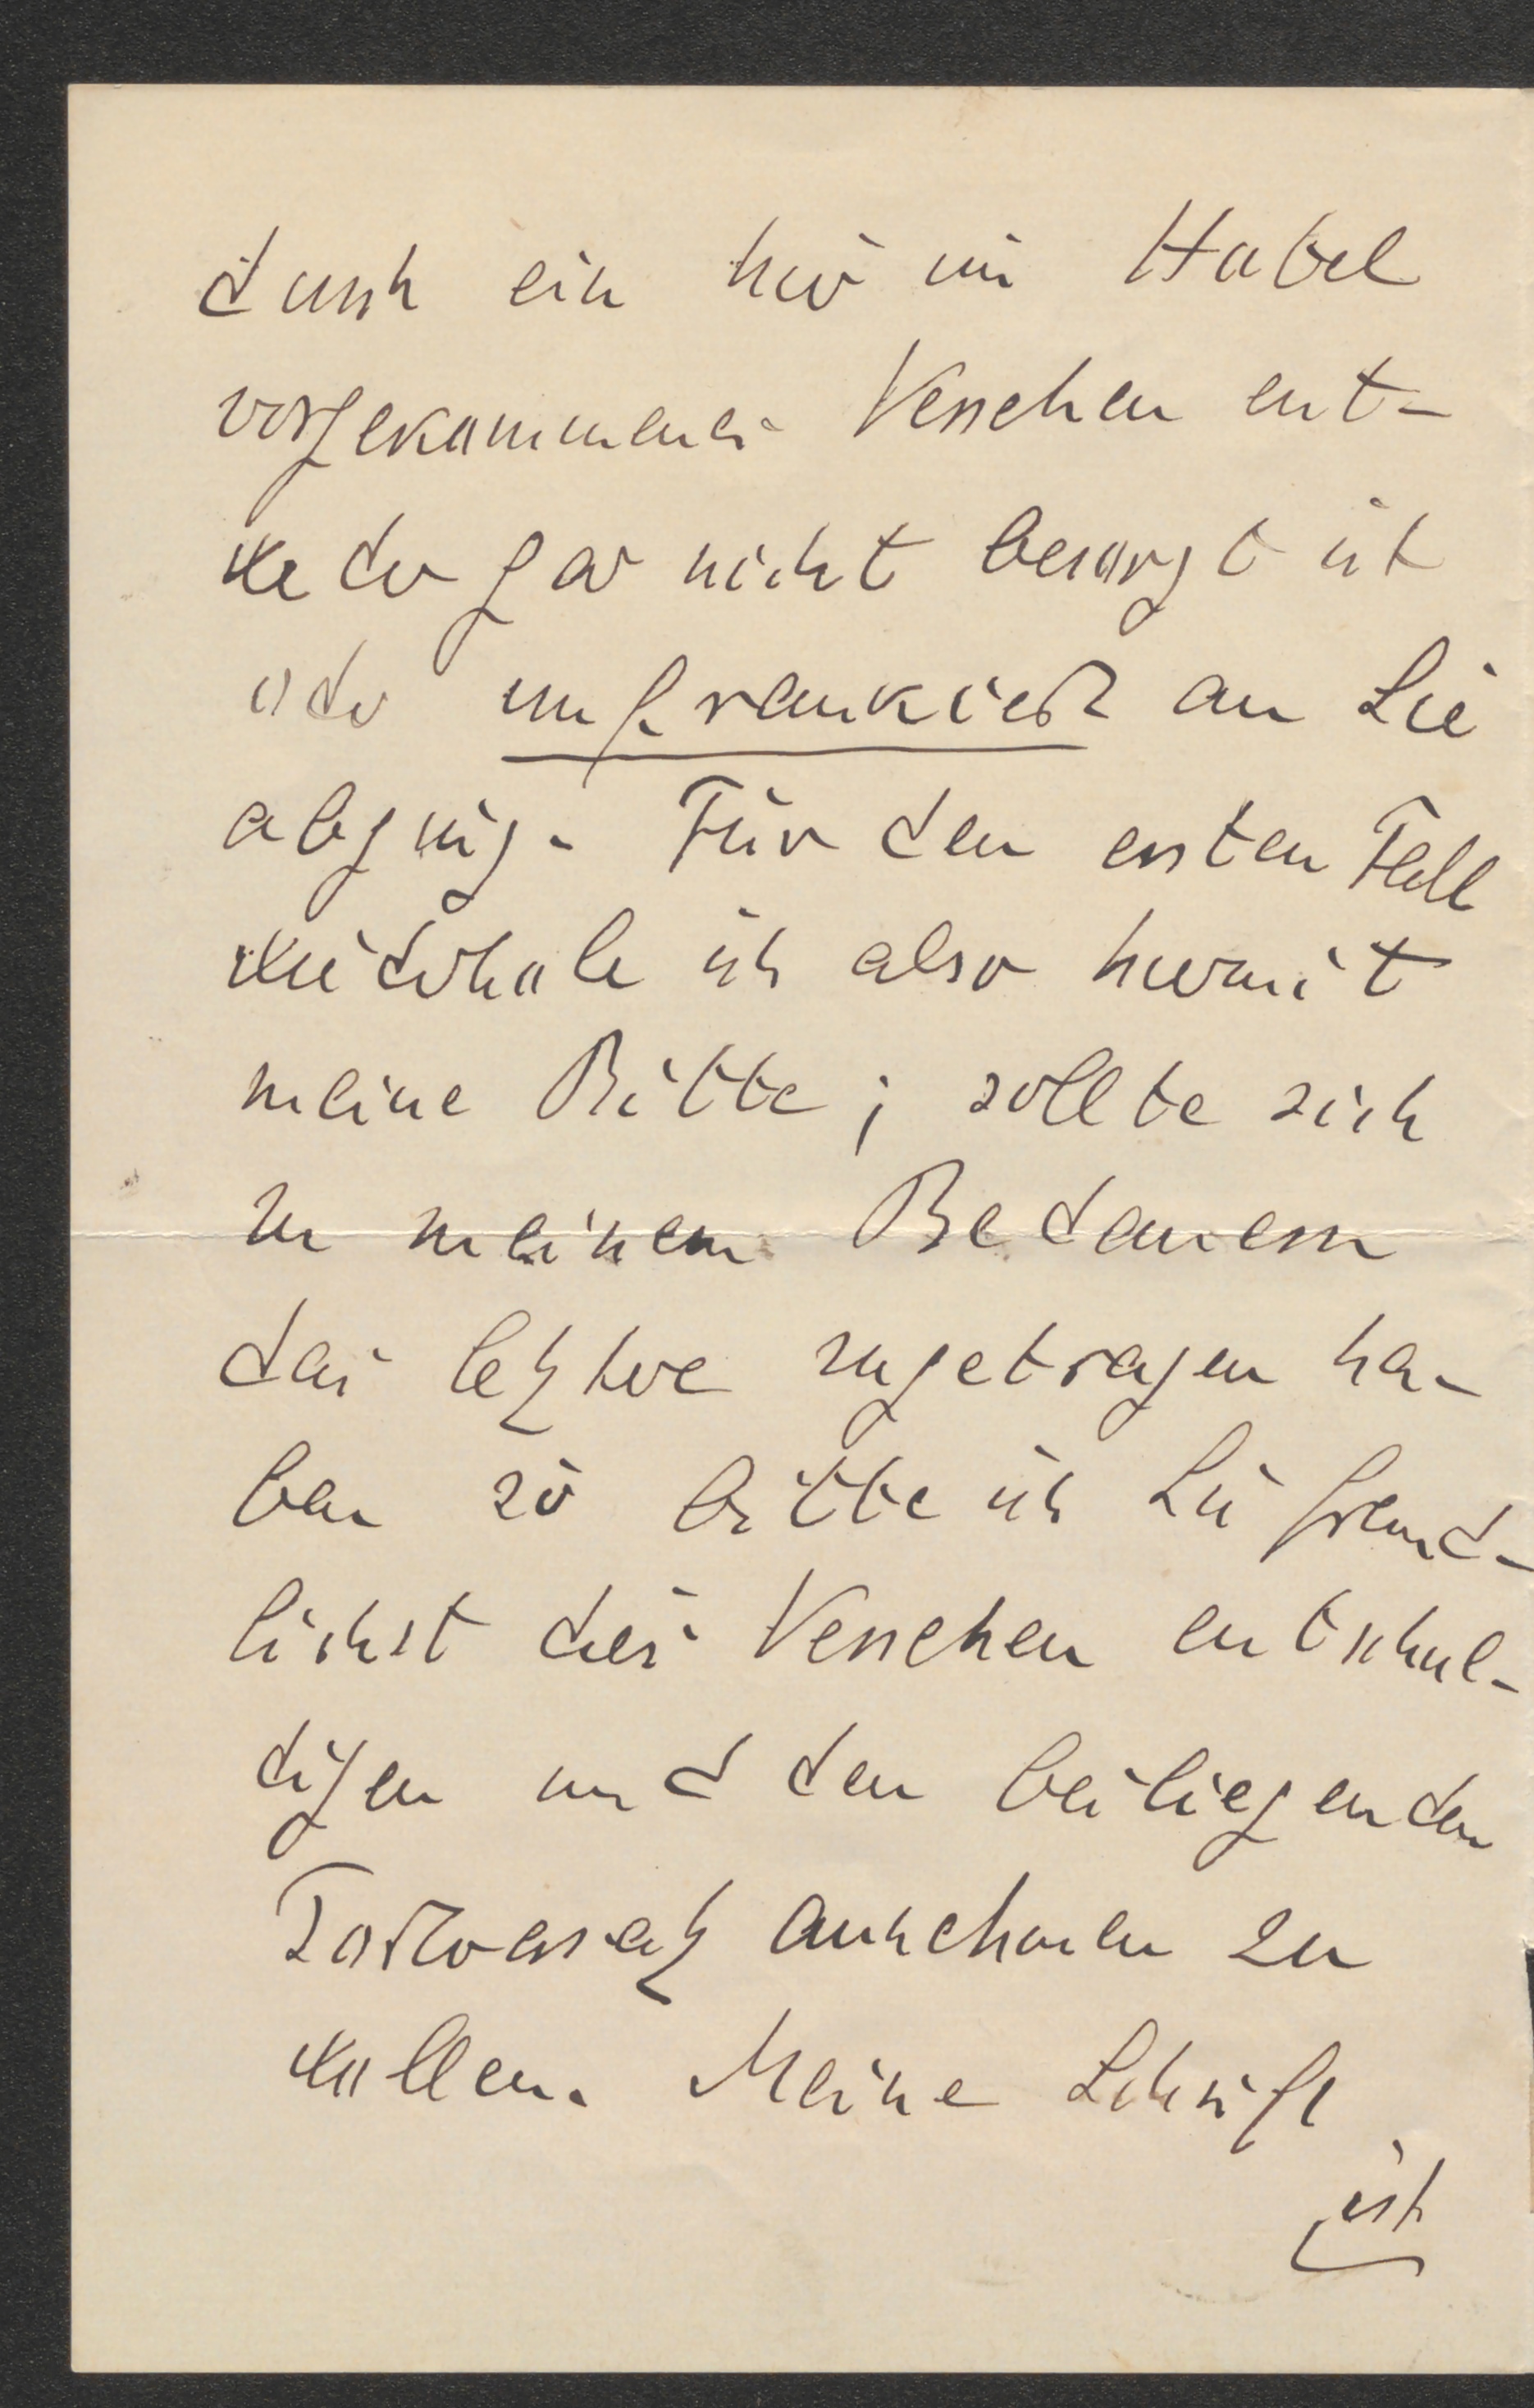 durch ein hier im Hotel
vorgekommenes Versehen ent-
weder gar nicht besorgt ist
oder unfrankiert an Sie
abging. Für den ersten Fall
wiederhole ich also hiermit
meine Bitte; sollte sich
zu meinem Bedauern
das letztere zugetragen ha-
ben so bitte ich Sie freund-
lichst dies Versehen entschul-
digen und den beiliegenden
Portoersatz annehmen zu
wollen. Meine Schrift
ist